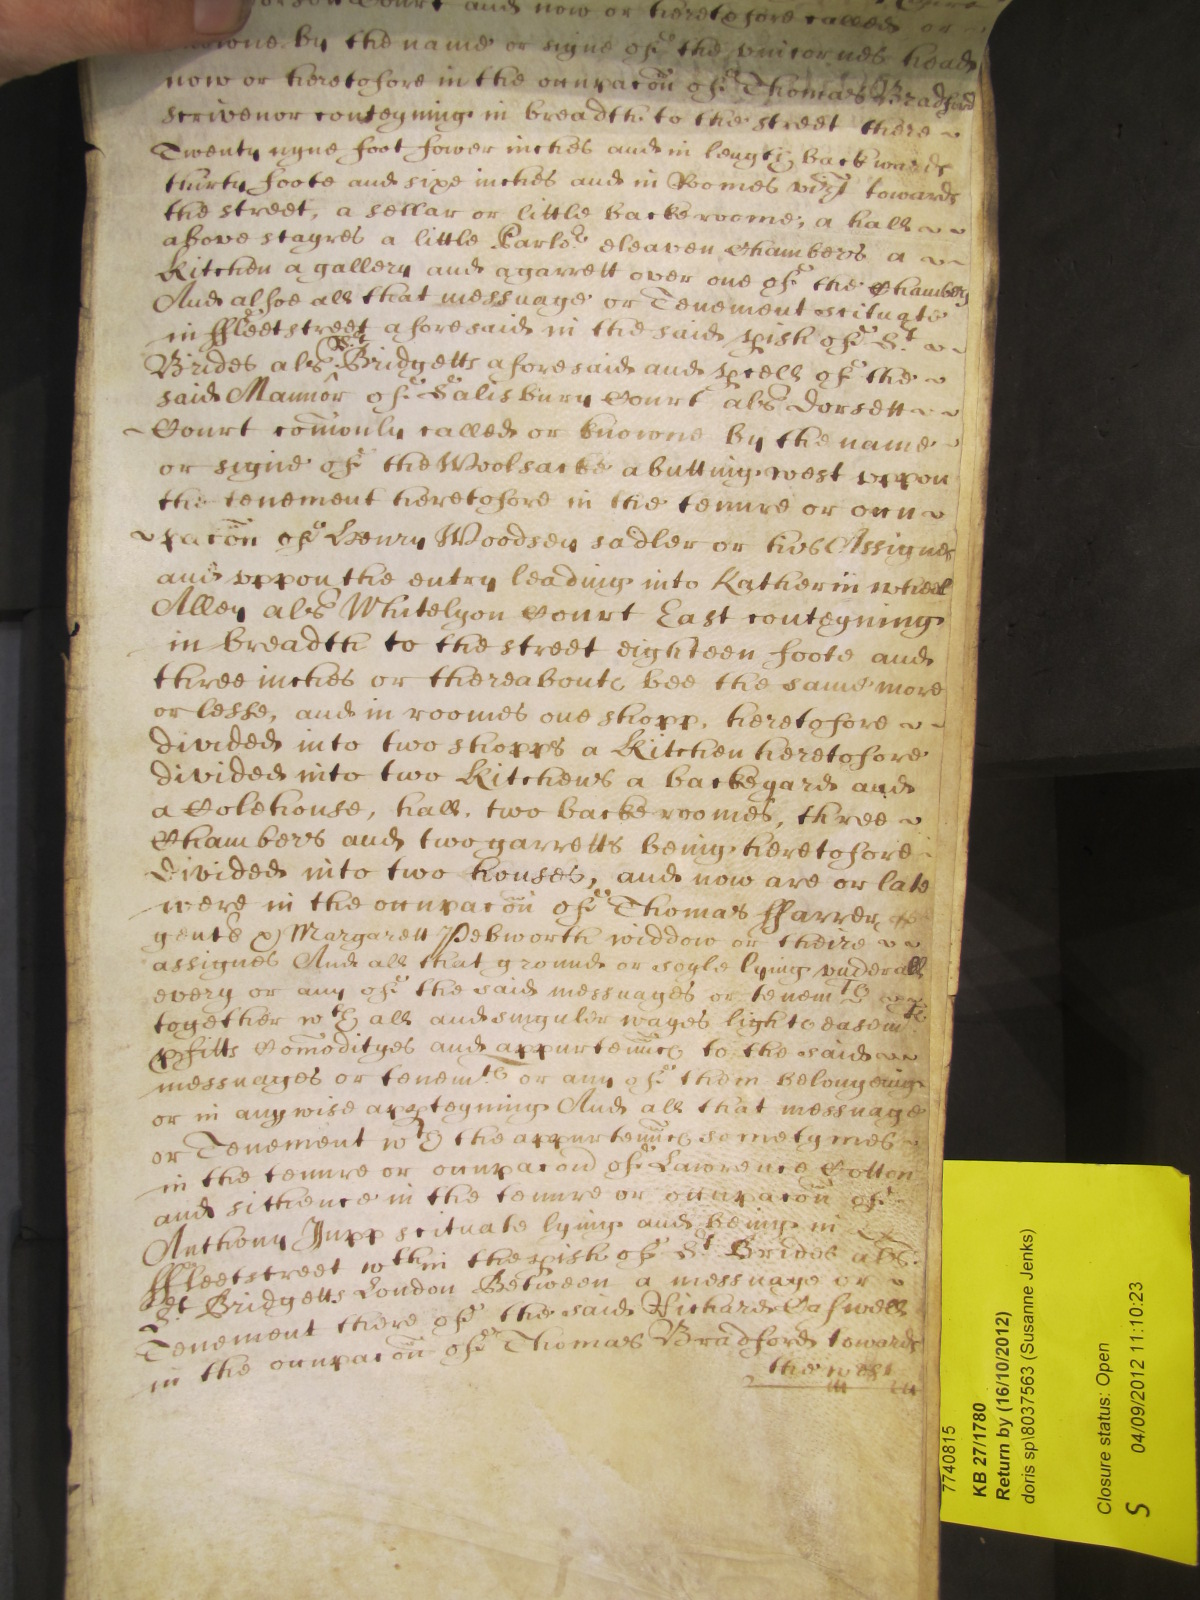 Court and now or heretofore called or
knowne by the name or signe of the vnicornes head
now or heretofore in the occupacōn of Thomas Bradford
scrivenor conteyning in breadth to the street there
Twenty nyne foot fower inches and in length backwards
thirty foote and sixe inches and in Roomes vizt towards
the street, a sellar or little backe roome, a hall
above stayres a little Parlor eleaven Chambers a
Kitchen a gallery and a garrett over one of the Chambers
And alsoe all that messuage or Tenement scituate
in ffleetstreet aforesaid in the said pish of St
Brides als St Bridgetts aforesaid and pcell of the
said Mannor of Salisbury Court als Dorsett
Court comōnly called or knowne by the name
or signe of the Woolsacke abutting west vppon
the tenement heretofore in the tenure or occu
pacōn of Henry Woodsey sadler or his Assignes
and vppon the entry leading into Katherin wheel
Alley als Whitelyon Court East conteyning
in breadth to the street eighteen foote and
three inches or thereabouts bee the same more
or lesse, and in roomes one shopp, heretofore
divided into two shopps a Kitchen heretofore
divided into two Kitchens a backeyard and
a Colehouse, hall, two backe roomes, three
Chambers and two garretts being heretofore
divided into two houses, and now are or late
were in the occupacōn of Thomas ffarrer
gent & Margarett Pebworth widdow or theire
assignes And all that ground or soyle lying vnder all
every or any of the said messuages or tenemts
together wth all and singuler wayes lights easemts
pfitts Comōdityes and appurtennces to the said
messuages or tenemts or any of them belongeing
or in any wise appteyning And all that messuage
or Tenement wth the appurtennces sometymes
in the tenure or occupacōn of Lawrence Cotton
and sithence in the tenure or occupacōn of
Anthony Jupp scituate lying and being in
ffleetstreet wthin the pish of St Brides als
St Bridgetts London Between a messuage or
Tenement there of the said Richard Caswell
in the occupacōn of Thomas Bradford towards
the west
7740815
KB 27/1780
Return by (16/10/2012)
doris sp\8037563 (Susanne Jenks)
Closure status: Open
S 04/09/2012 11:10:23